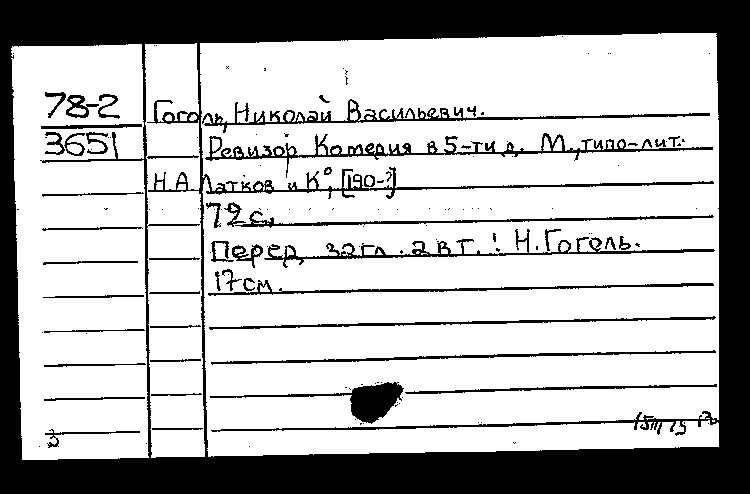 78-2 Гоголь, Николай Васильевич.
3651 Ревизор Комедия в 5-ти д. М., типо-лит.
Н.А. Латков и К°, [190-?]
72 с.
Перед загл. авт.: Н. Гоголь.
17 см.